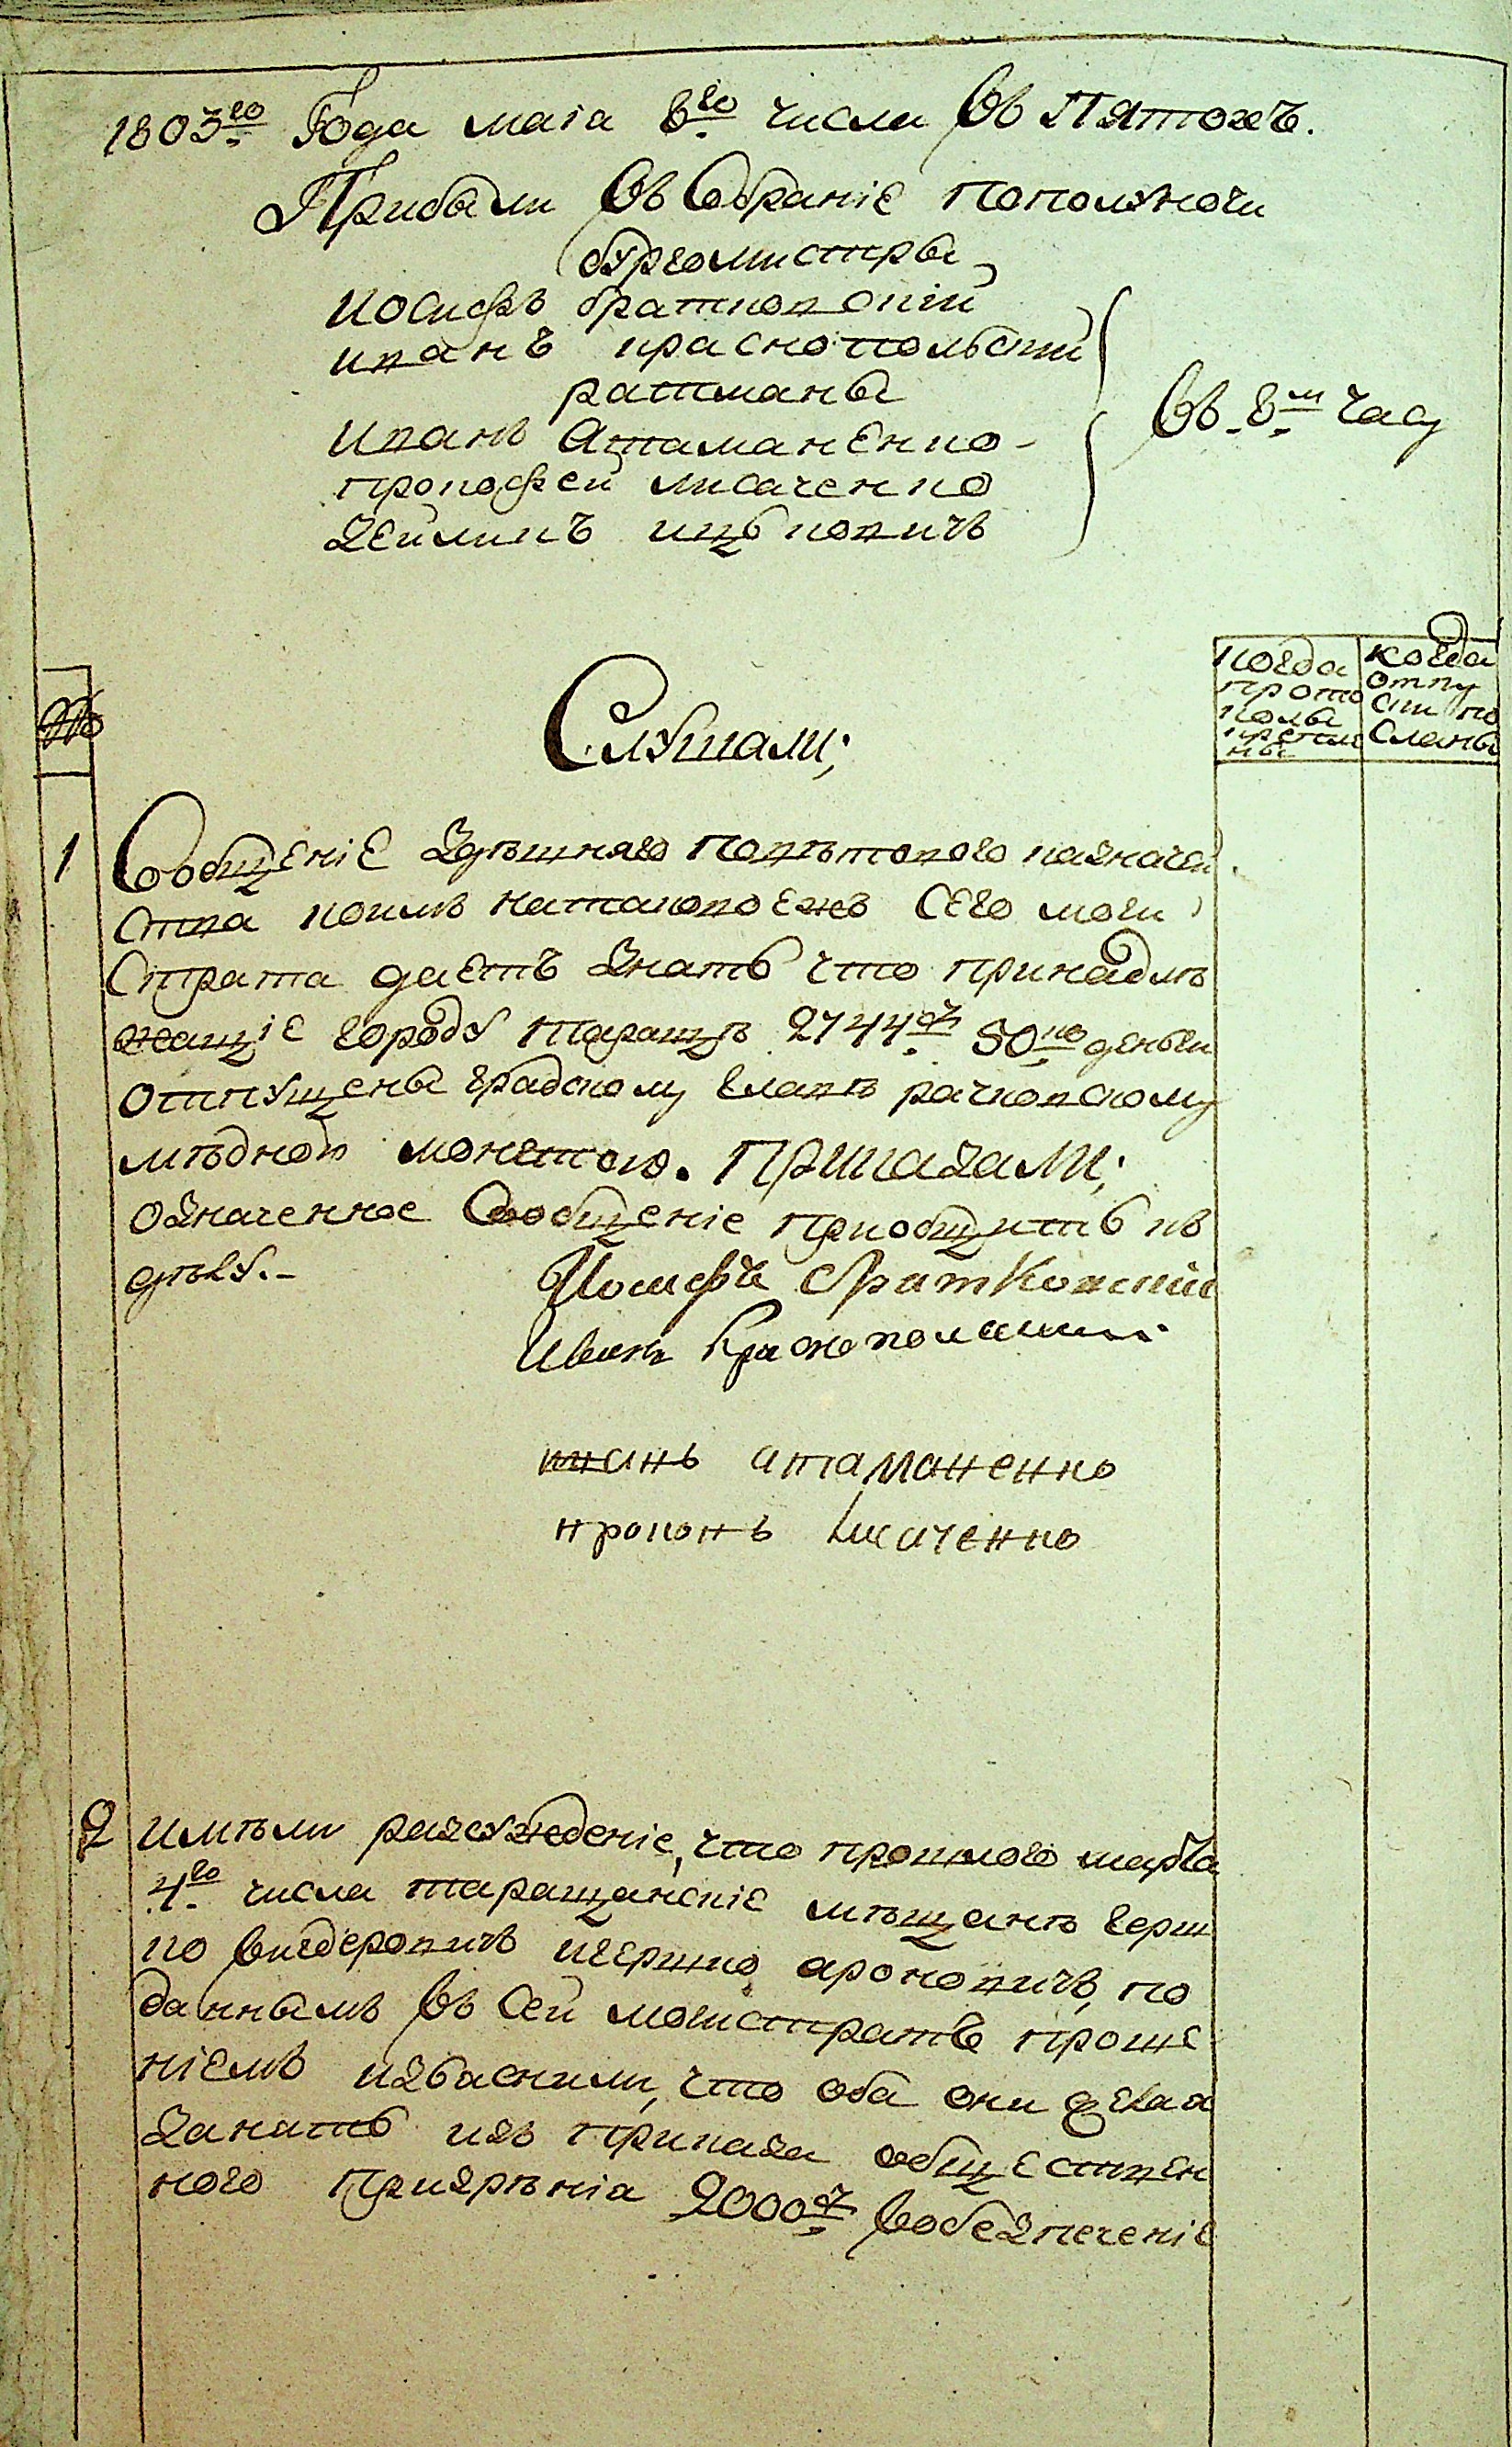 1803го Года маіа 8го числа Въ Пятокъ.
Прибыли Въ Собраніе пополуночи
бургомистры
Иосифъ братковскій
иванъ краснопольскій
ратманы
Иванъ Атаманенко
прокофей лисаченко
Зейликъ ицковичъ
Въ 8м часу
когда
прото
колы
крепле
ны
когда
отпу
ски по
сланы
№
Слушали;
1 Сообщеніе здѣшняго повѣтового казначей
ства коимъ на таковоежъ Сего маги
Страта даетъ знать что принадлѣ
жащіе городу таращѣ 2744р 50ко деньги
отпущены градскому главѣ рачковскому
мѣдной монетою. Приказали;
означенное Сообщеніе приобщить къ
дѣлу.
Иосифъ братковскій
Иванъ Краснополский
иванъ атаманенко
прокопъ лисаченко
2 имѣли разсужденіе, что прошлого марта
4го числа таращанскіе мѣщанѣ герш
ко вигдеровичъ игершко ароновичъ, по
даннымъ Въ Сей магистратъ проше
ніемъ изъяснили, что оба они желая
занять изъ приказа общественъ
ного призрѣнія 2000р Вобезпеченіе